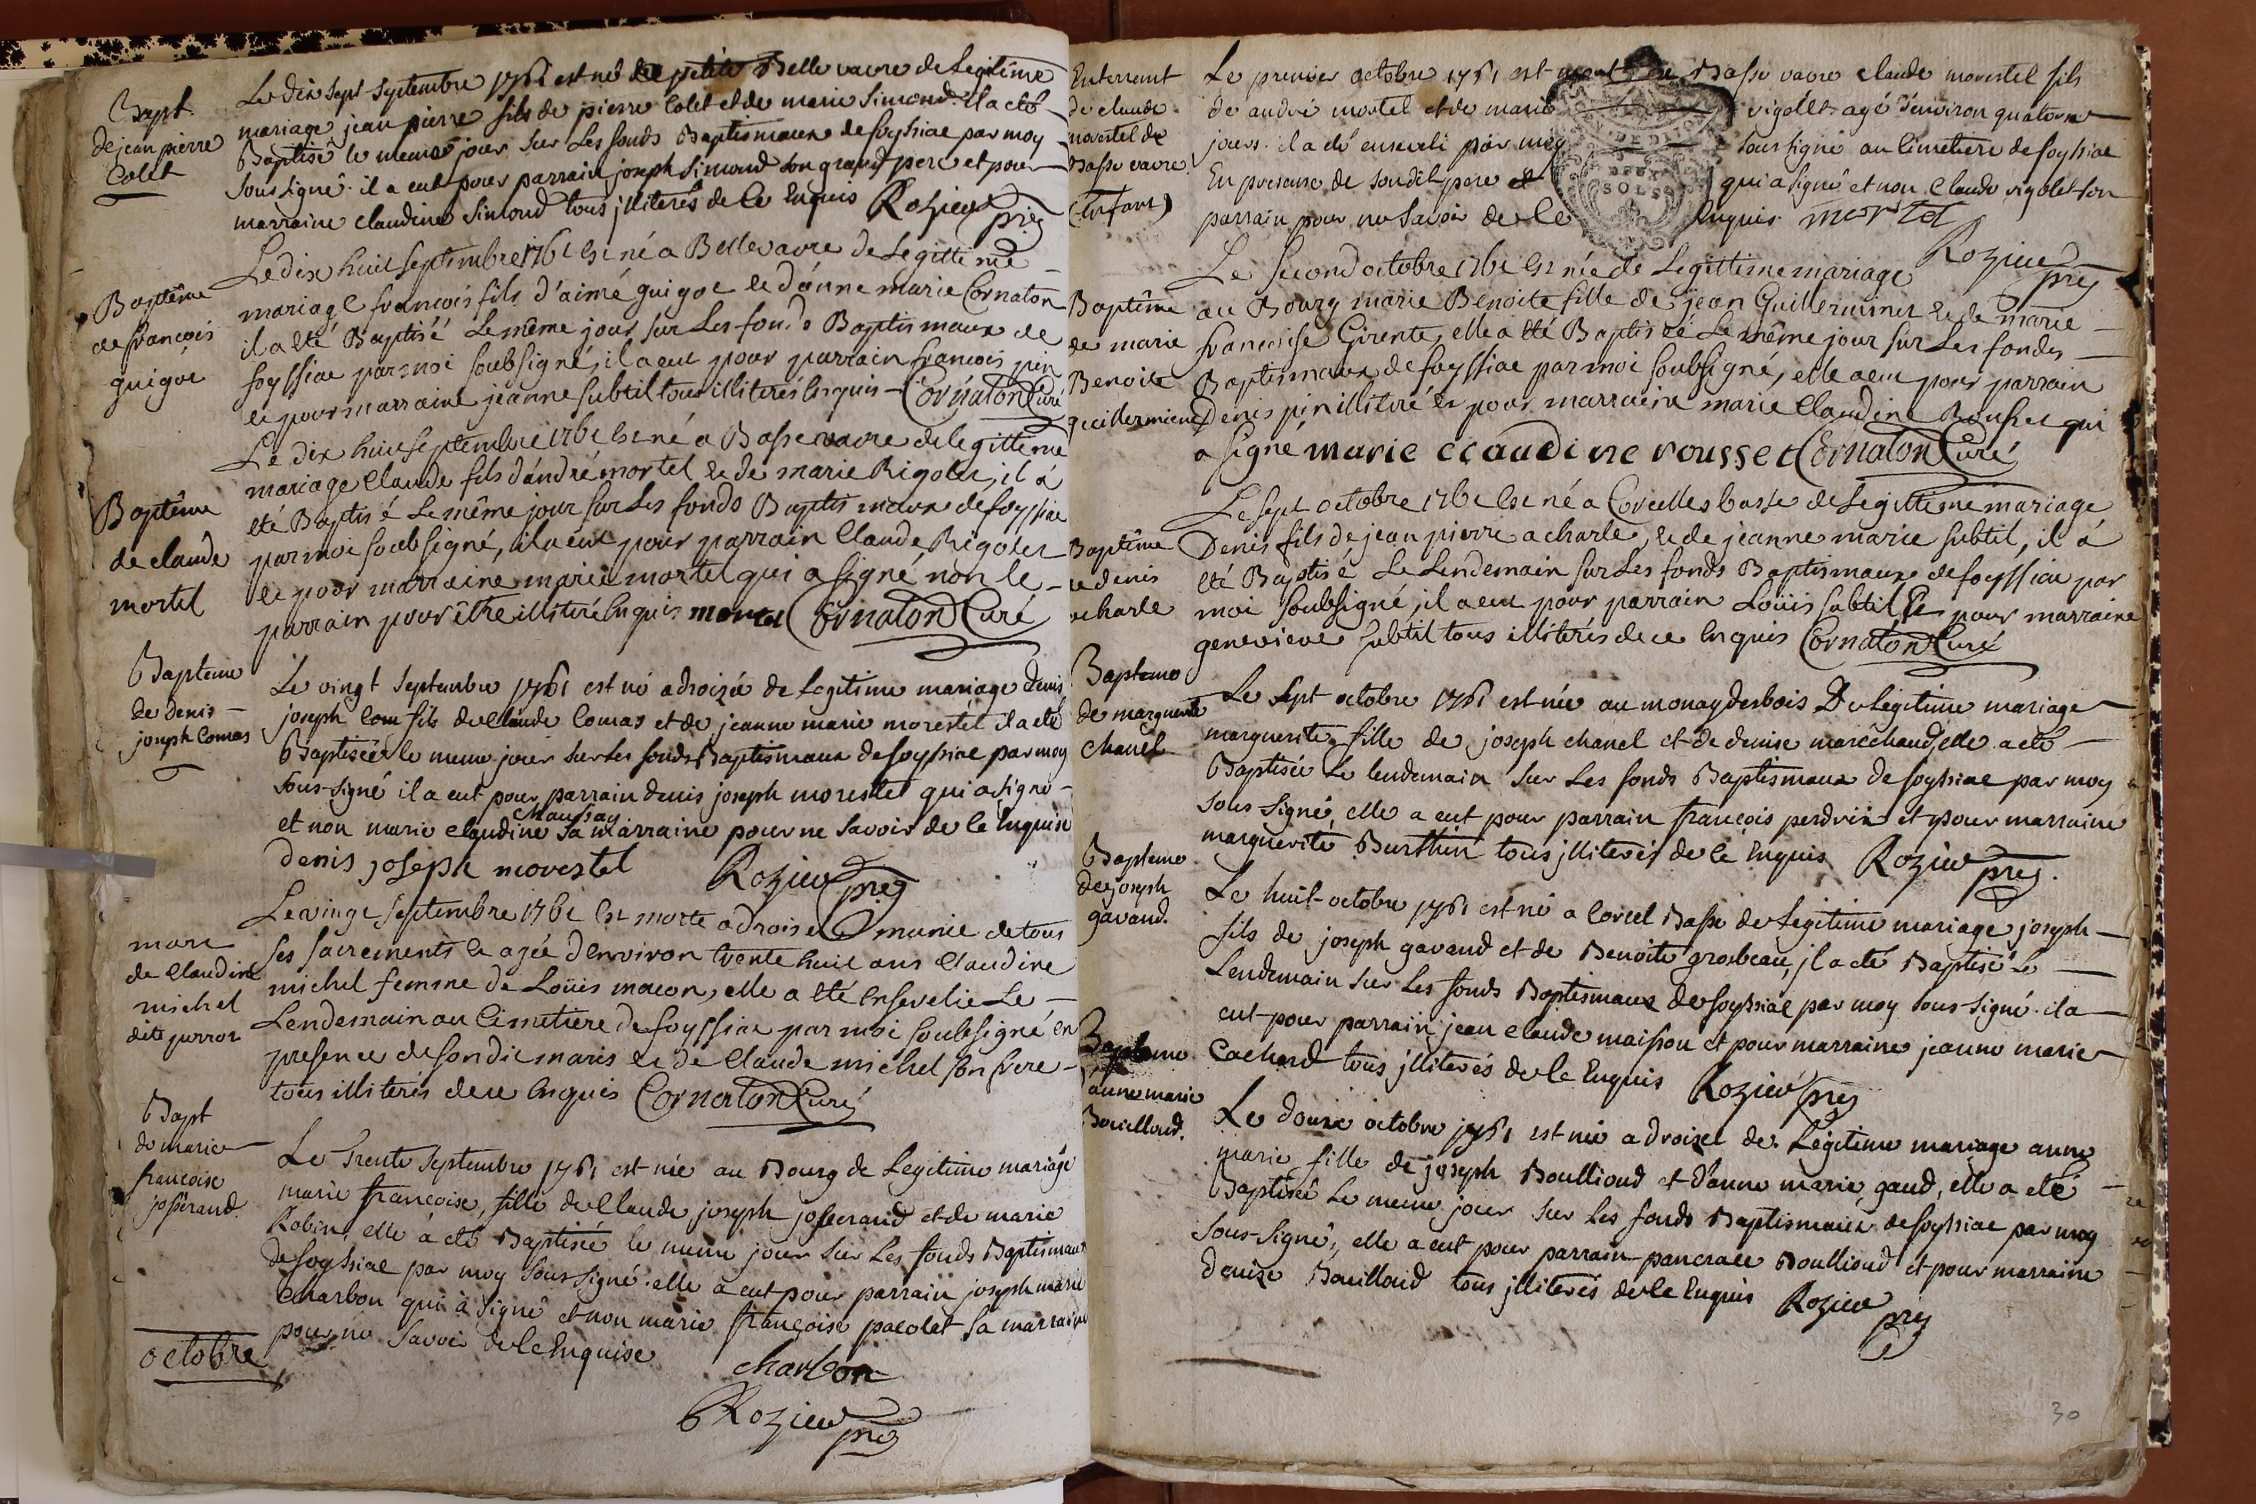 Bapt.
de jean pierre
Colet
Le dix sept Septembre 1761 est né de petite Bellevavre de Legitime
mariage jean pierre fils de pierre Colet et de marie Simond il a eté
Baptisé le meme jour sur Les fonds Baptismaux de foyssiac par moy
sous signé. il a eut pour parrain joseph Simond son grand pere et pour
marraine claudine Simond tous jlliterés de Ce Enquis Rozier prê
Baptême
de françois
guigoé
Le dix huit Septembre 1761 Est né a Bellevavre de Legittime
mariage françois fils d'aimé guigoe et d'anne marie Cornaton
il a été Baptisé Le même jour sur Les fonds Baptismaux de
foyssiac par moi soubsigné, il a eut pour parrain francois pin
et pour marraine jeanne subtil tous illiterés Enquis Cornaton Curé
Baptême
de claude
mortel
Le dix huit Septembre 1761 Est né a Bassevavre de legittime
mariage Claude fils d'andré mortel et de marie Rigolet, il à
eté Baptisé Le même jour sur Les fonds Baptismaux de foyssiac
par moi soubsigné, il a eut pour parrain Claude Rigolet
et pour marraine marie mortel qui a signé non le
parrain pour être illitéré Enquis mortel Cornaton Curé
Bapteme
de denis
joseph Comas
Le vingt Septembre 1761 est né a droizé de Legitime mariage denis
joseph Com fils de Claude Comas et de jeanne marie morestel il a eté
Baptisée le meme jour sur Les fonds Baptismaux de foyssiac par moy
sous-signé il a eut pour parrain denis joseph morestel qui a signé
Maussay
et non marie claudine sa marraine pour ne savoir de Ce Enquise
denis joseph morestel Rozier prê
mort
de Claudine
michel
dite perrot
Le vingt Septembre 1761 Est morte a droisel munie de tous
ses sacrements et agée d'environ trente huit ans Claudine
michel femme de Loüis macon, elle a été Ensevelie Le
Lendemain au Cimetiere de foyssiac par moi soubsigné en
presence de son dit maris et de Claude michel son frere
tous illiterés de ce Enquis Cornaton Curé
Bapt
de marie
francoise
josserand.
Le trente Septembre 1761 est née au Bourg de Legitime mariage
marie françoise, fille de Claude joseph josserand et de marie
Robin, elle à eté Baptisée le meme jour sur Les fonds Baptismaux
de foyssiac par moy sous signé. elle a eut pour parrain joseph marie
Charbon qui à signé et non marie françoise pacolet sa marraine
pour ne savoir de Ce Enquise
charbon
Rozier prê
octobre
Enterremt
de claude
morestel de
Basse vavre.
(Enfant)
Le premier octobre 1761 est mort en Basse vavre claude morestel fils
de andré mortel et de marie vigolet agé d'environ quatorze
jours. il a eté enseveli par moy sous signé au Cimetiere de foyssiac
En presence de son dit pere et qui a signé et non Claude vigolet son
parrain pour ne savoir de Ce Enquis mortel
Rozier prê
DEUX
SOLS
Baptême
de marie
Benoite
guillerminet
Le second octobre 1761 Est née de Legittime mariage
au Bourg marie Benoite fille de jean Guillerminet et de marie
francoise Girente, elle a été Baptisée Le même jour sur Les fonds
Baptismaux de foyssiac par moi soubsigné, elle a eut pour parrain
Denis pin illitéré et pour marraine marie Claudine Rousset qui
a signé marie claudine rousset Cornaton Curé
Baptême
de denis
acharle
Le sept octobre 1761 Est né a Corcelles basse de Legittime mariage
Denis fils de jean pierre acharle, et de jeanne marie subtil, il à
eté Baptisé Le Lendemain sur Les fonds Baptismaux de foyssiac par
moi soubsigné, il a eut pour parrain Loüis subtil et pour marraine
genevieve subtil tous illiterés de ce Enquis Cornaton Curé
Bapteme
de marguerite
Chanel
Le sept octobre 1761 est née au monay des bois De Legitime mariage
marguerite fille de joseph chanel et de denise maréchaud, elle a eté
Baptisée Le lendemain sur Les fonds Baptismaux de foyssiac par moy
sous signé, elle a eut pour parrain françois perdrix et pour marraine
marguerite Burthin tous jlliterés de Ce Enquis Rozier prê.
Bapteme
de joseph
gavand.
Le huit octobre 1761 est né a Corcel Basse de Legitime mariage joseph
fils de joseph gavand et de Benoite grosbeau, il a eté Baptisé Le
Lendemain sur Les fonds Baptismaux de foyssiac par moy sous signé. il a
eut pour parrain jean claude maisson et pour marraine jeanne marie
Cachard tous jlliterés de Ce Enquis Rozier prê
Bapteme
d'anne marie
Bouilloud.
Le douze octobre 1761 est née a droizel de Legitime mariage anne
marie fille de joseph Boullioud et d'anne marie gaud, elle a eté
Baptisée Le meme jour sur Les fonds Baptismaux de foyssiac par moy
sous-signé, elle a eut pour parrain pancrace Boullioud et pour marraine
denise Bouilloud tous jlliterés de Ce Enquis Rozier prê
30